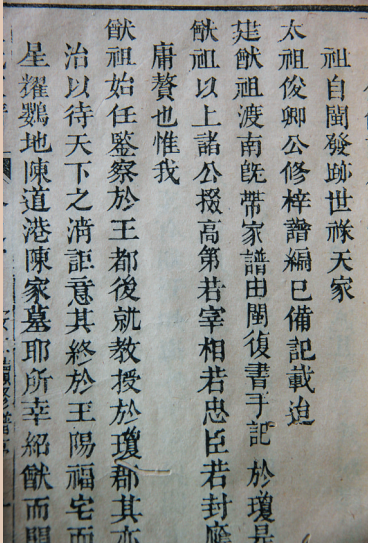 祖自閩發跡世祿天家
太祖俊卿公修梓譜編已備記載迨
猷祖渡南旣帶家譜由閩復書手記於瓊
猷祖以上諸公掇高第若宰相若忠臣若封
庸贅也惟我
猷祖始任鑒察於王都後就教授於瓊郡其
治以待天下之清詎意其終於王陽福宅而
星耀鸚地陳道港陳家墓耶所幸紹猷而